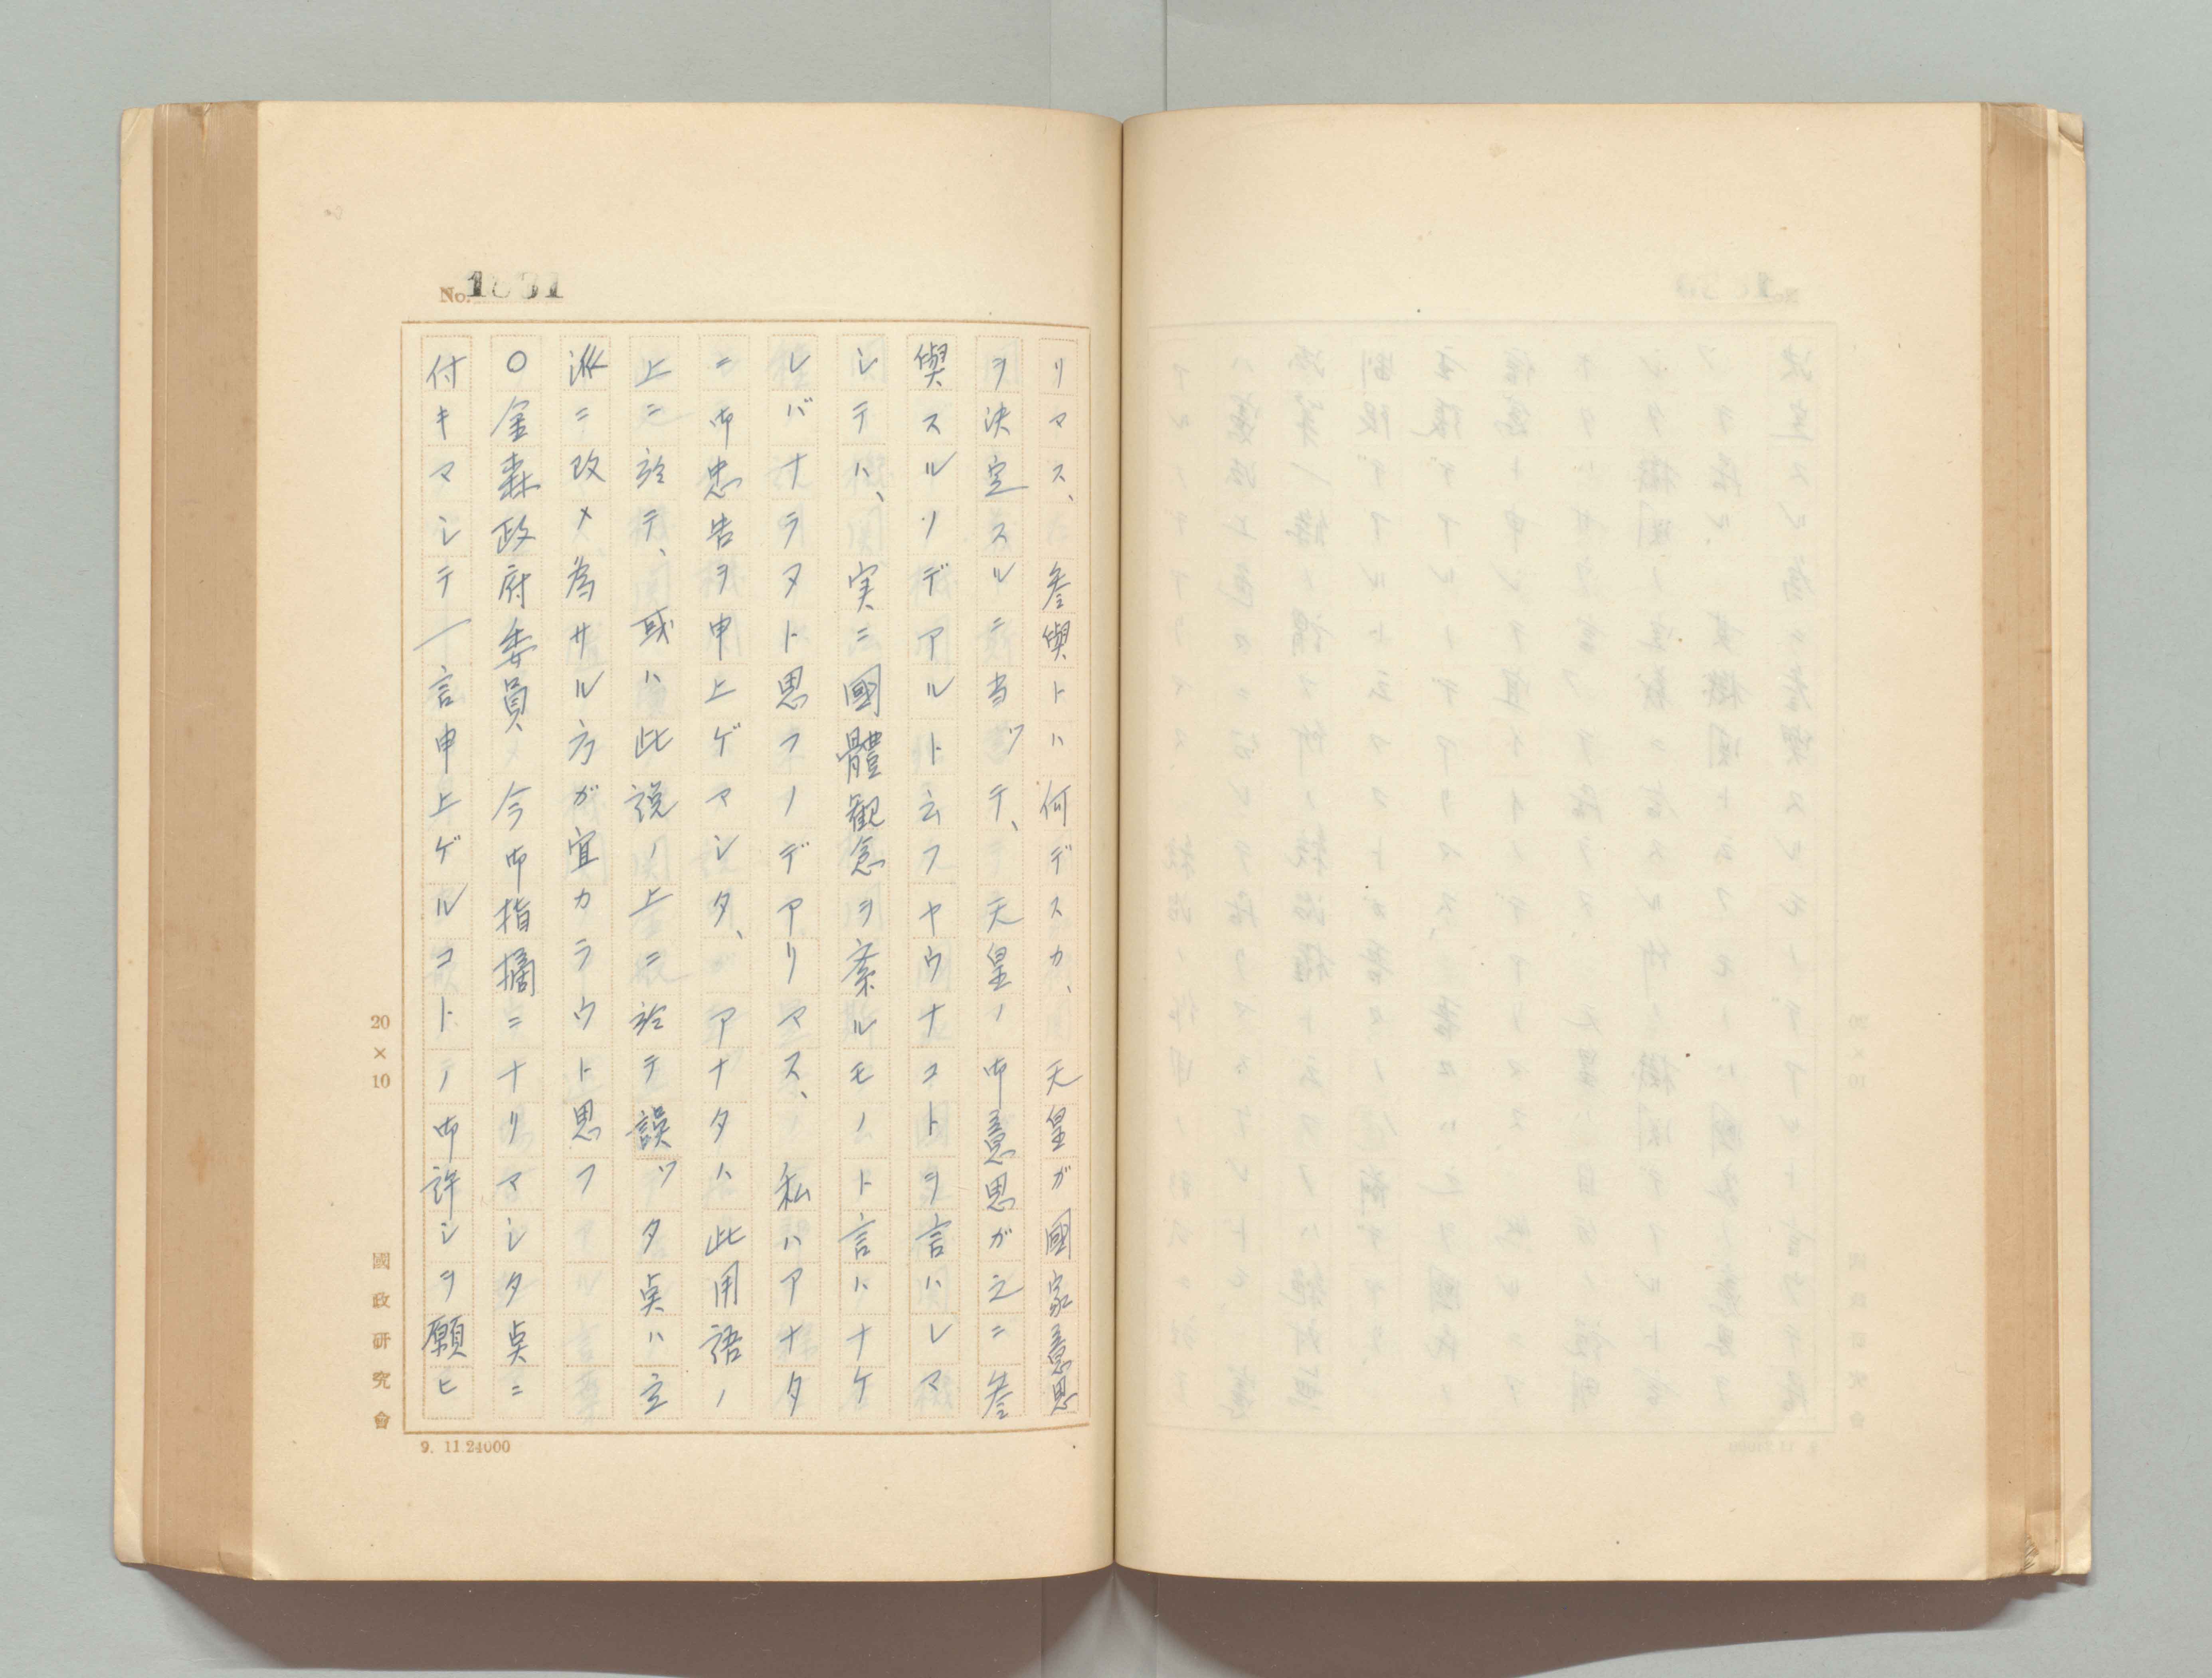 No. 1831
リマス、参與トハ何デスカ、天皇ガ國家意思
ヲ決定スルニ当ッテ、天皇ノ御意思ガ之ニ参
與スルソデアルト云フヤウナコトヲ言ハレマ
シテハ、実ニ國體観念ヲ紊ルモノト言ハナケ
レバナラヌト思フノデアリマス、私ハアナタ
ニ御忠告ヲ申上ゲマシタ、アナタハ此用語ノ
上ニ於テ、或ハ此説ノ上ニ於テ誤ッタ点ハ立
派ニ改メ為サル方ガ宜カラウト思フ
○金森政府委員 今御指摘ニナリマシタ点ニ
付キマシテ一言申上ゲルコトノ御許シヲ願ヒ
20×10
國政研究會
9. 11 24000